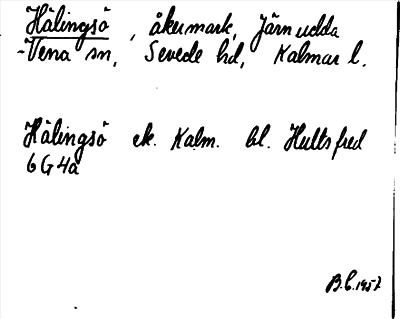 Hälingsö, åkermark, Järnudda
Vena sn, Sevede hd, Kalmar l.
Hälingsö ek. Kalm. bl. Hultsfred
6G4a
B.C. 1957